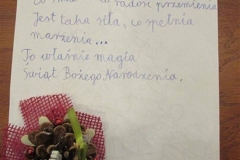 w radość przemienia
Jest taka siła, co spełnia
marzenia...
To właśnie magia
Świąt Bożego Narodzenia.